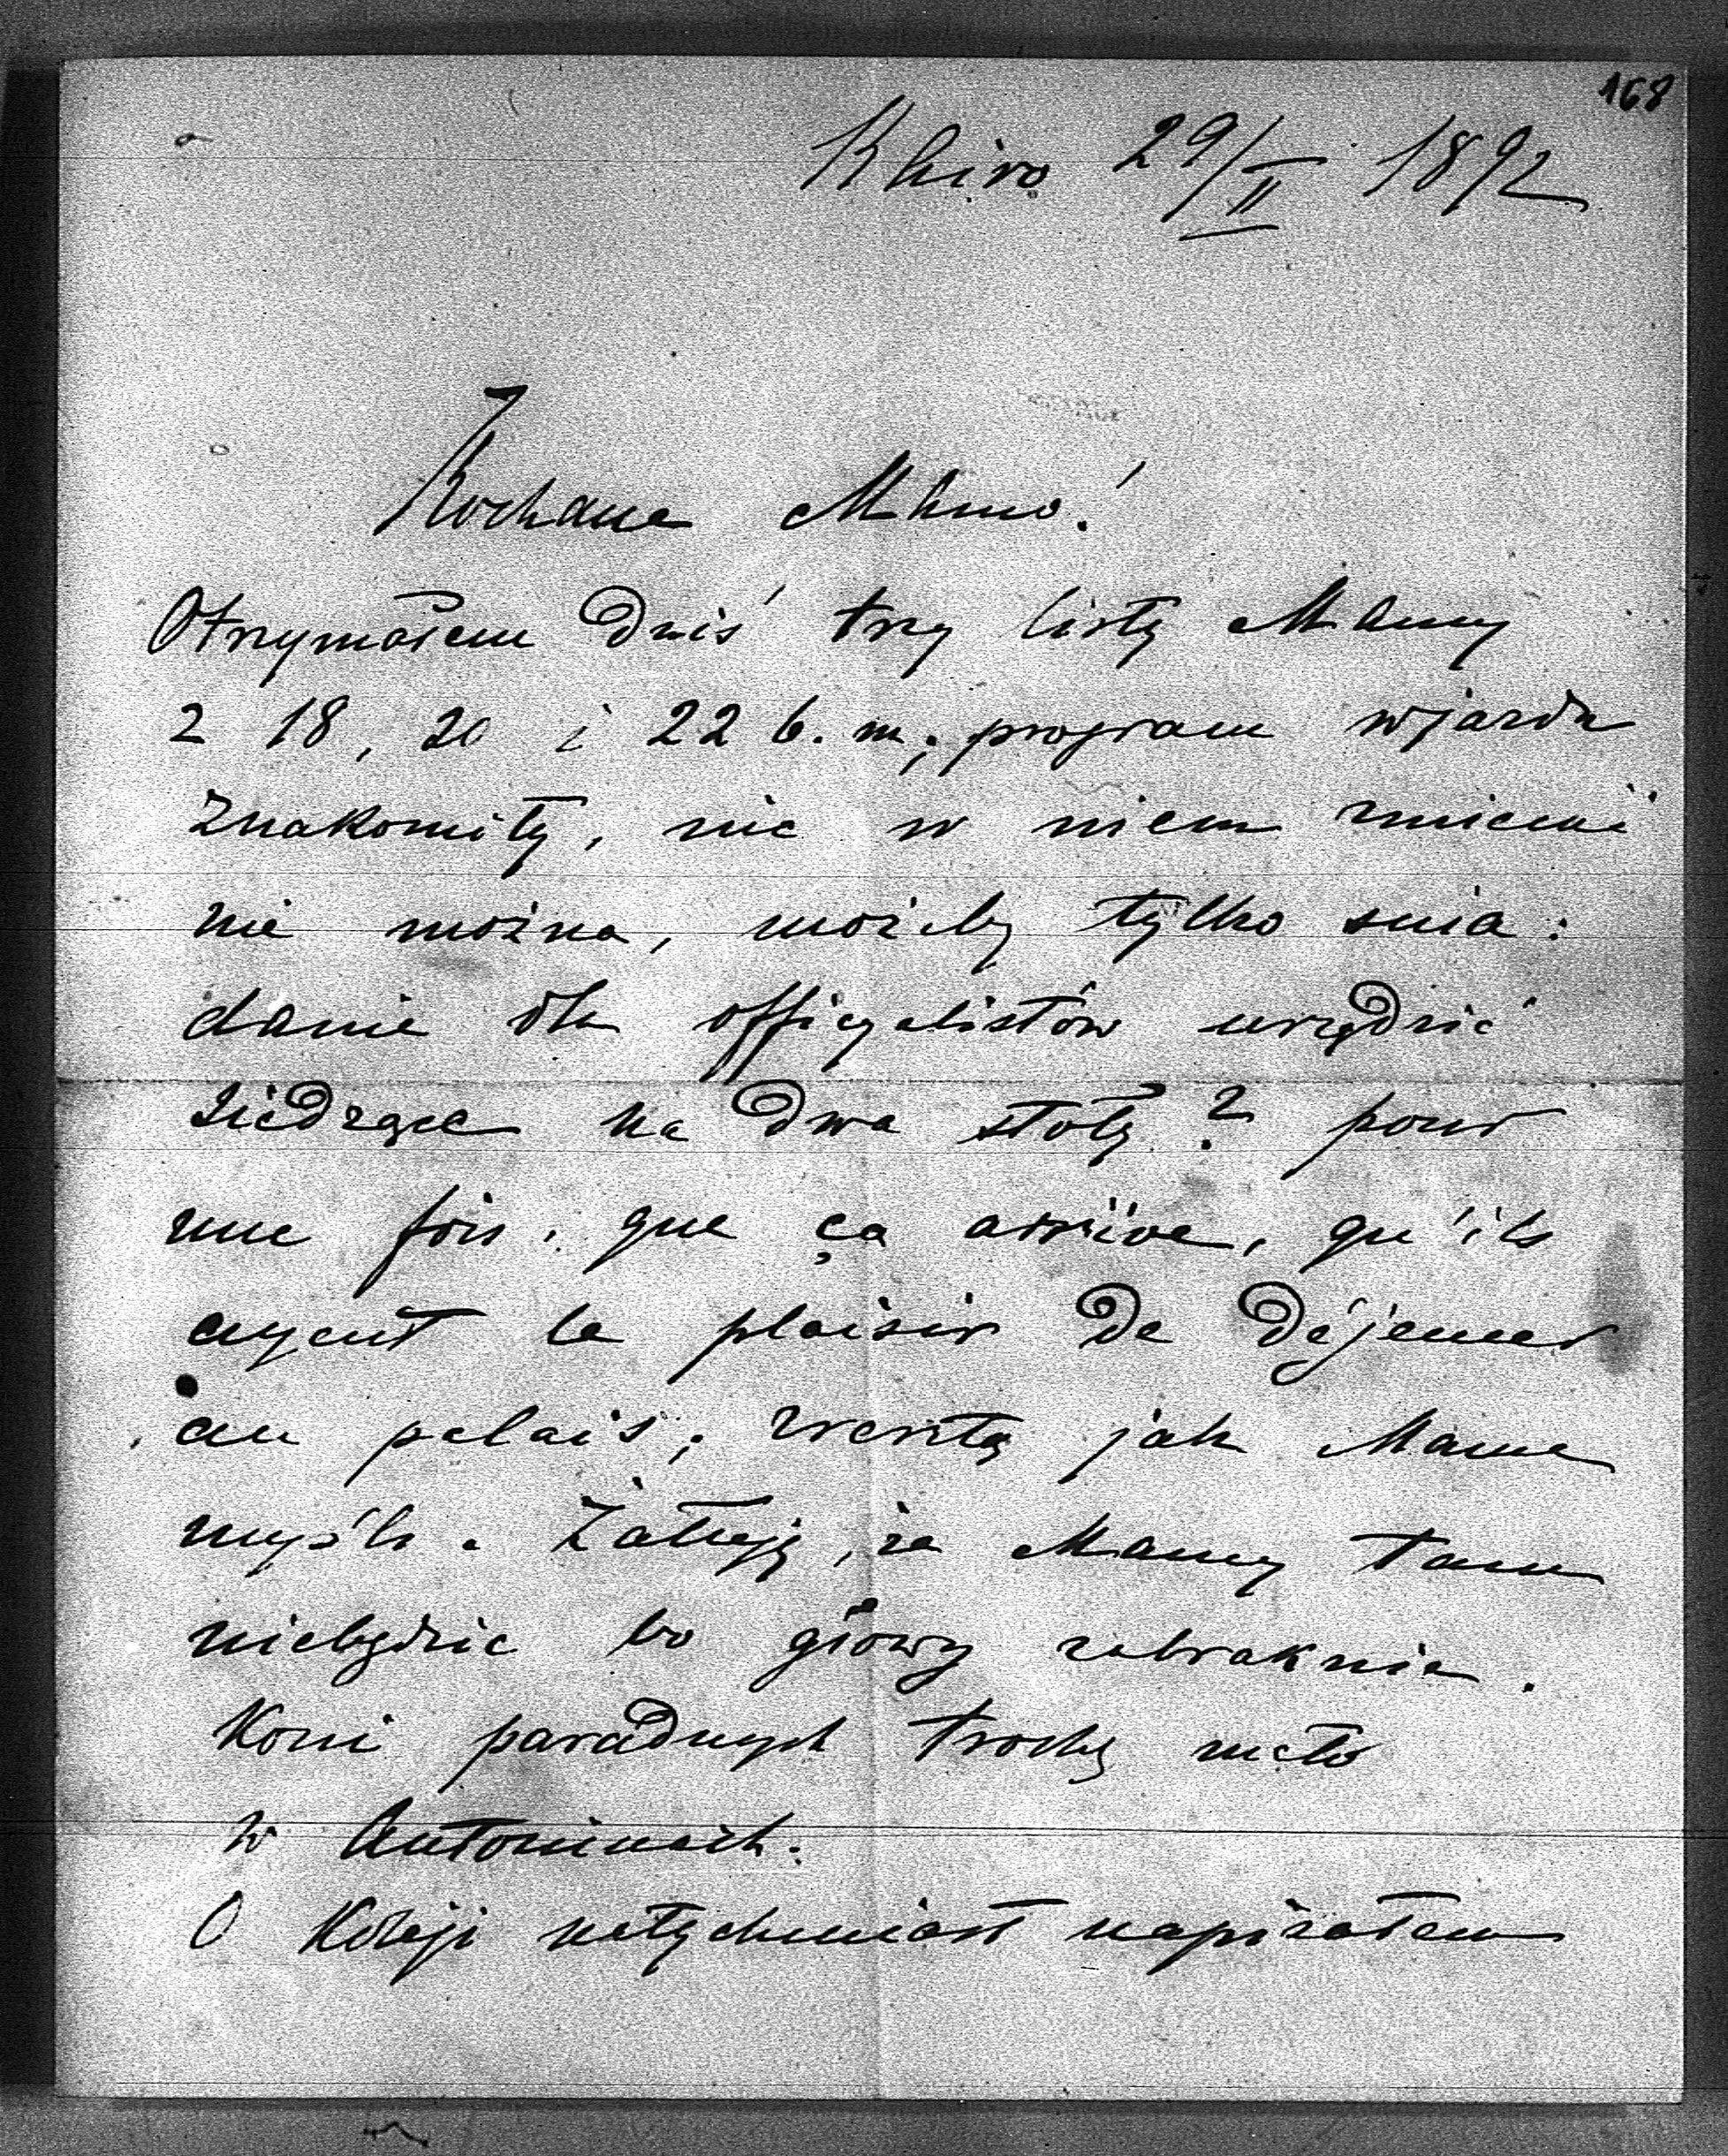 168
Khiro 29/II 1892
Kochana Mamo!
Otrzymałem dziś trzy listy Mamy
z 18, 20 i 22 b. m.; program wjazdu
znakomity, nic w niem zmienić
nie można, możeby tylko śnia:
danie dla officyalistów urządzić
siedzące na dwa stoły? pour
une fois que ça arrive, qu'ils
ayent le plaisir de déjeuner
au palais; zresztą jak Mama
myśli. Żałuję, że Mamy tam
niebędzie bo głowy zabraknie.
Koni paradnych trochę mało
w Antoninach.
O Koleji natychmiast napisałem